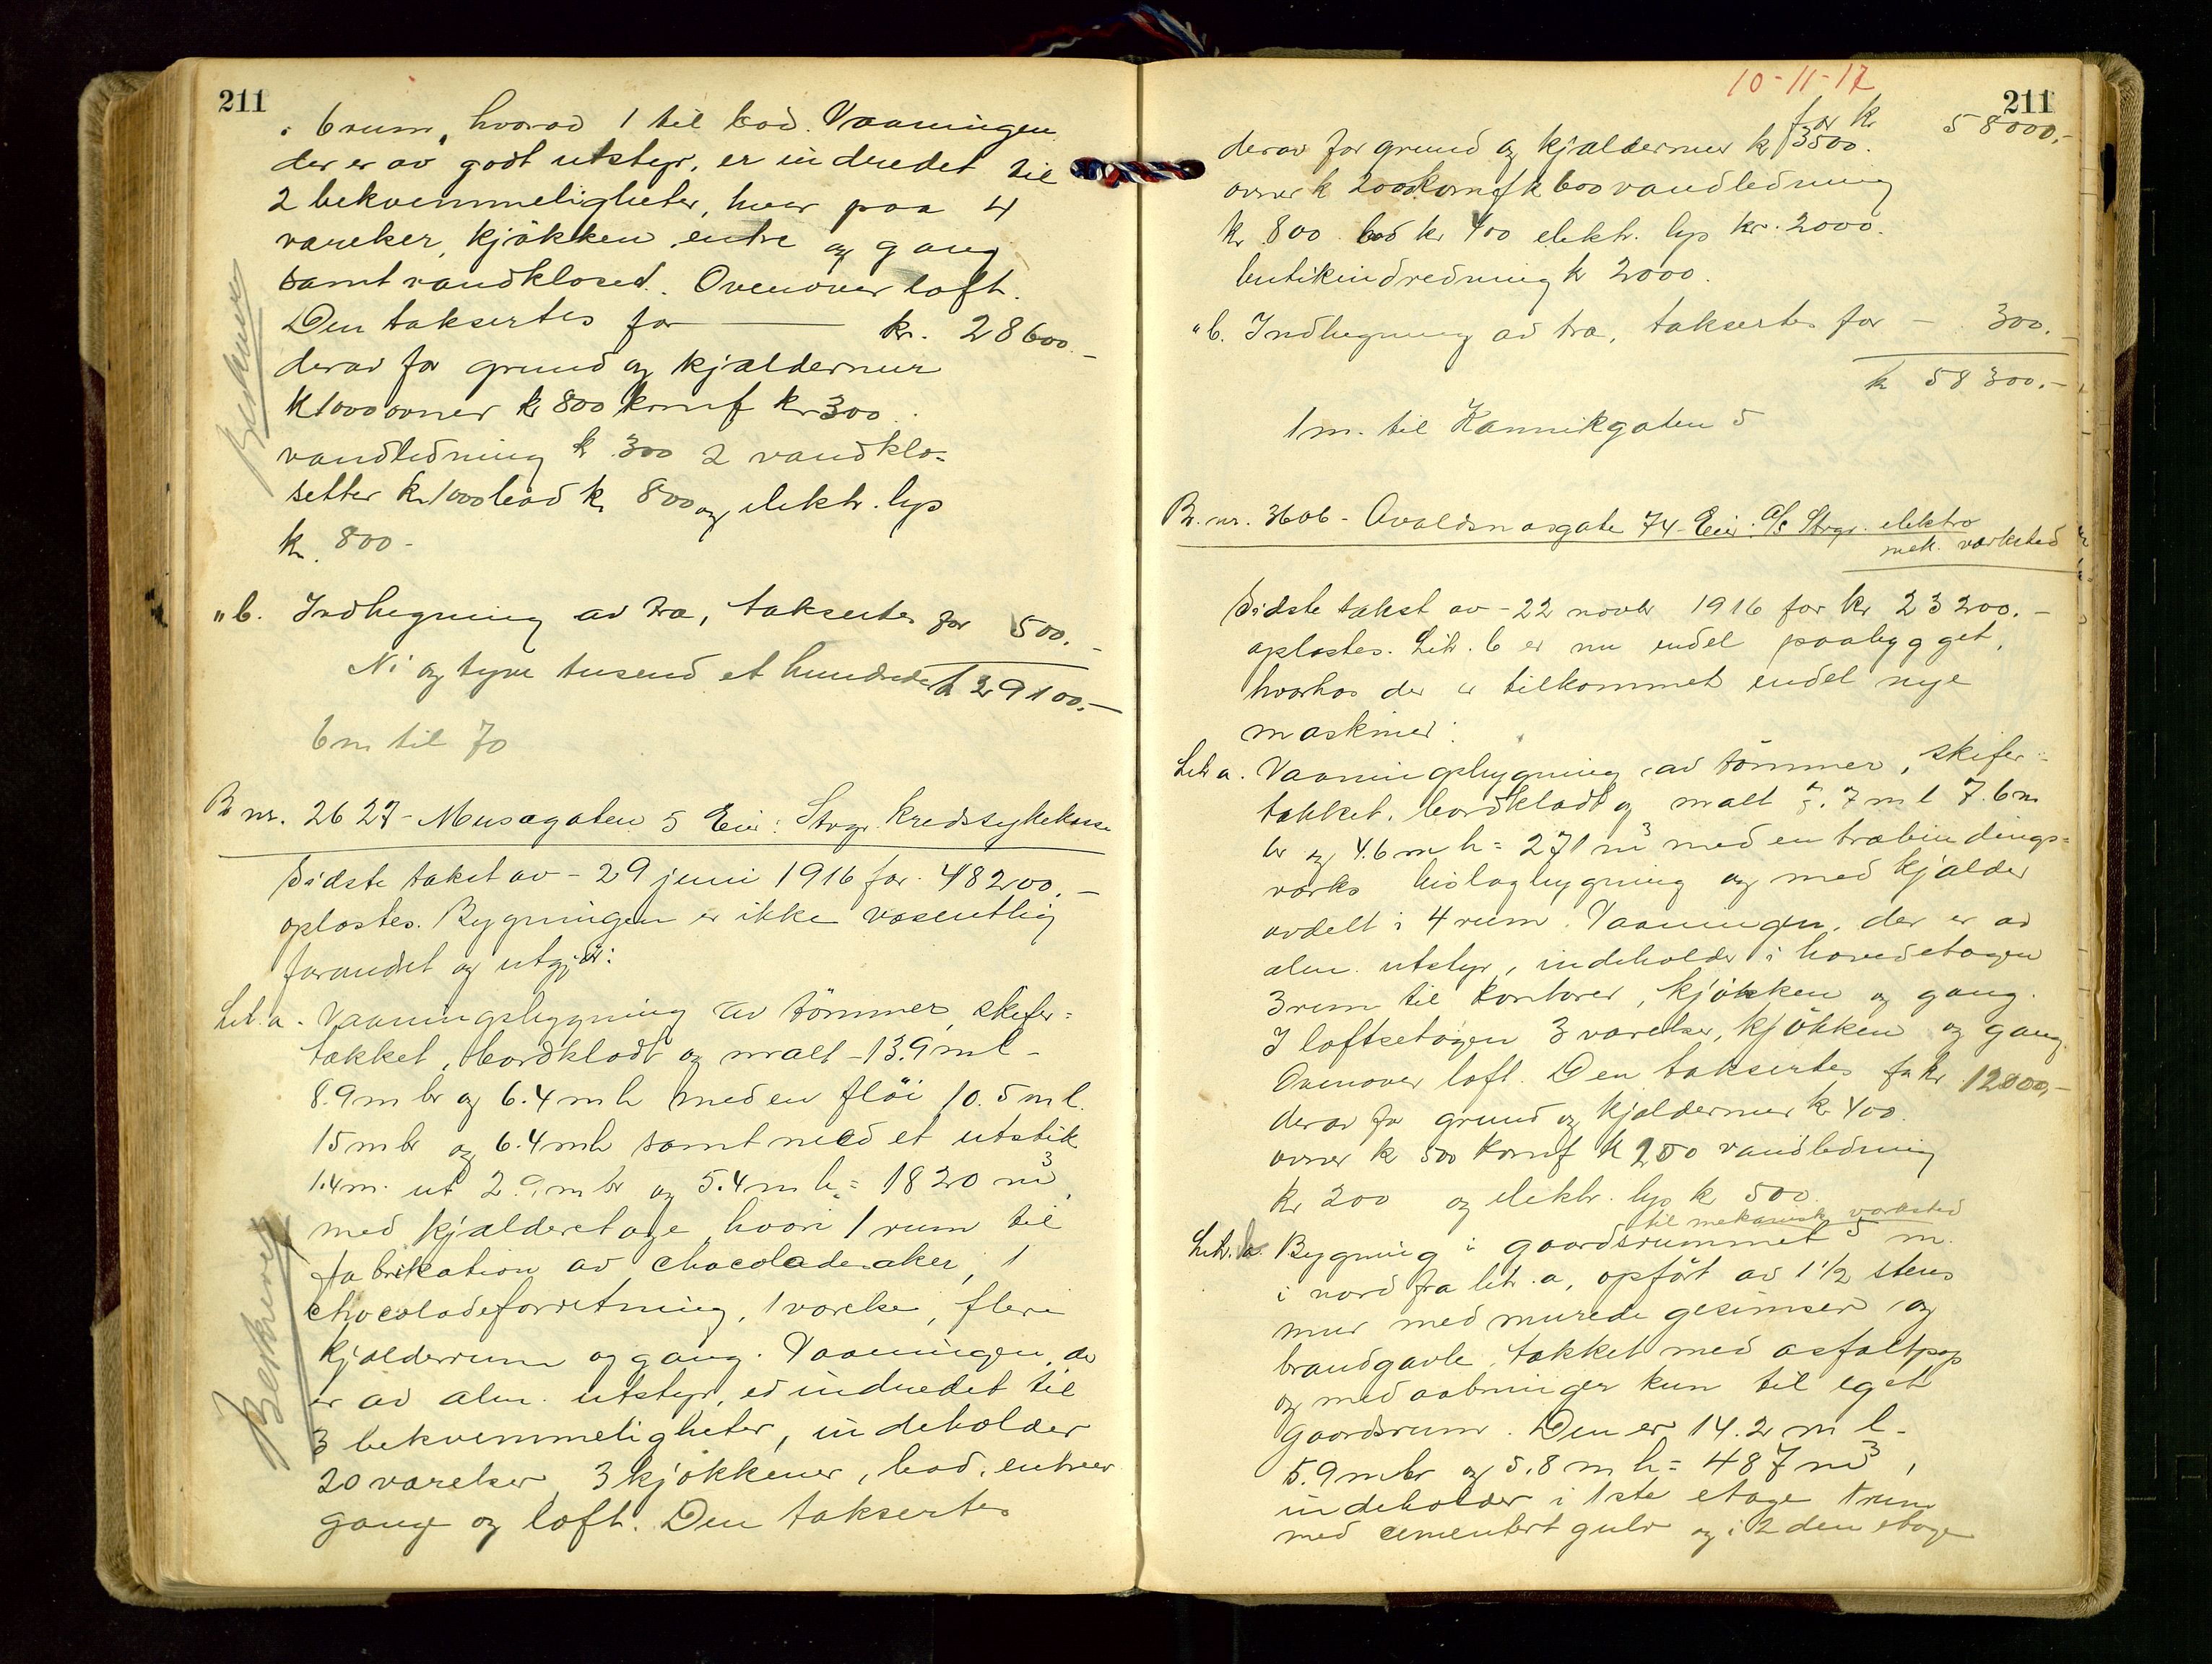 211
i 6 rum, hvorav 1 til bad. Vaaningen
der er av godt utstyr, er indredet til
2 bekvemmeligheter, hver paa 4
værelser, kjøkken, entre og gang
samt vandklosed. Ovenover loft.
Den takseres for kr. 28600.-
derav for grund og kjældermur
k 1000 ovner kr 800 komf kr 300.
vandledning k 300 2 vandklo-
setter kr. 1000 bad kr 800 og elektr. lys
kr. 800-
"b. Indhegning av træ, takseres for 500.-
Ni og tyve tusend et hundrede k 29100.-
6 m til 70
B nr. 2627 - Musægaten 5 Eier: Stvgr. Kredssykekasse
Sidste takst av - 29 juni 1916 for 48200.-
opløstes. Bygningen er ikke væsentlig
forandret og utgjör:
Lit. a. Vaaningsbygning av tømmer, skifer-
tækket, bordklædt og malt - 13.9 m l -
8.9 m br og 6.4 m h med en fløi 10.5 m l.
15 m br og 6.4 m h samt med et utstik
1.4 m. ut 2.9 m br og 5.4 m h = 1820 m³,
med kjælderetage, hvori 1 rum til
fabrikation av chocoladesaker, 1
chocoladeforretning, 1 værelse, flere
kjælderrum og gang. Vaaningen, der
er av alm. utstyr, er indredet til
3 bekvemmeligheter, indeholder
20 værelser, 3 kjøkkener, bad, entreer
gange og loft. Den takseres
Beskrevet
Beskrevet
10-11-17
211
for kr 58000.-
derav for grund og kjældermur kr 3500.
ovner k 2000 komf k 600 vandledning
kr 800 bad kr 400 elektr. lys kr. 2000.
butikindredning k 2000.
"b. Indhegning av træ, takseres for - 300.-
k 58300.-
1 m. til Kannikgaten 5
B. nr. 3606 - Avaldsnæsgate 74 - Eier: A/S Stvgr. elektro
mek. værksted
Sidste takst av - 22 novbr 1916 for kr 23200.-
opløstes. Litr. b er nu endel paabygget,
hvorhos der er tilkommet endel nye
maskiner:
Litr a. Vaaningsbygning av tømmer, skifer-
tækket, bordklædt og malt 7.7 m l 7.6 m
br og 4.6 m h = 271 m³ med en træbindings-
verks bislagbygning og med kjælder
avdelt i 4 rum. Vaaningen, der er av
alm. utstyr, indeholder i hovedetagen
3 rum til kontorer, kjøkken og gang.
I loftsetagen 3 værelser, kjøkken og gang.
Ovenover loft. Den takseres for kr 12000.-
derav for grund og kjældermur kr 400.
ovner k 500 komf k 200 vandledning
kr 200 og elektr. lys k 500.
til mekanisk værksted
Litr. b. Bygning i gaardsrummet 5 m.
i nord fra litr. a, opført av 1 1/2 stens
mur med murede gesimser og
brandgavle, tækket med asfaltpap
og med aabninger kun til eget
gaardsrum. Den er 14.2 m l -
5.9 m br og 5.8 m h = 487 m³,
indeholder i 1ste etage 1 rum
med cementert gulv og i 2den etage